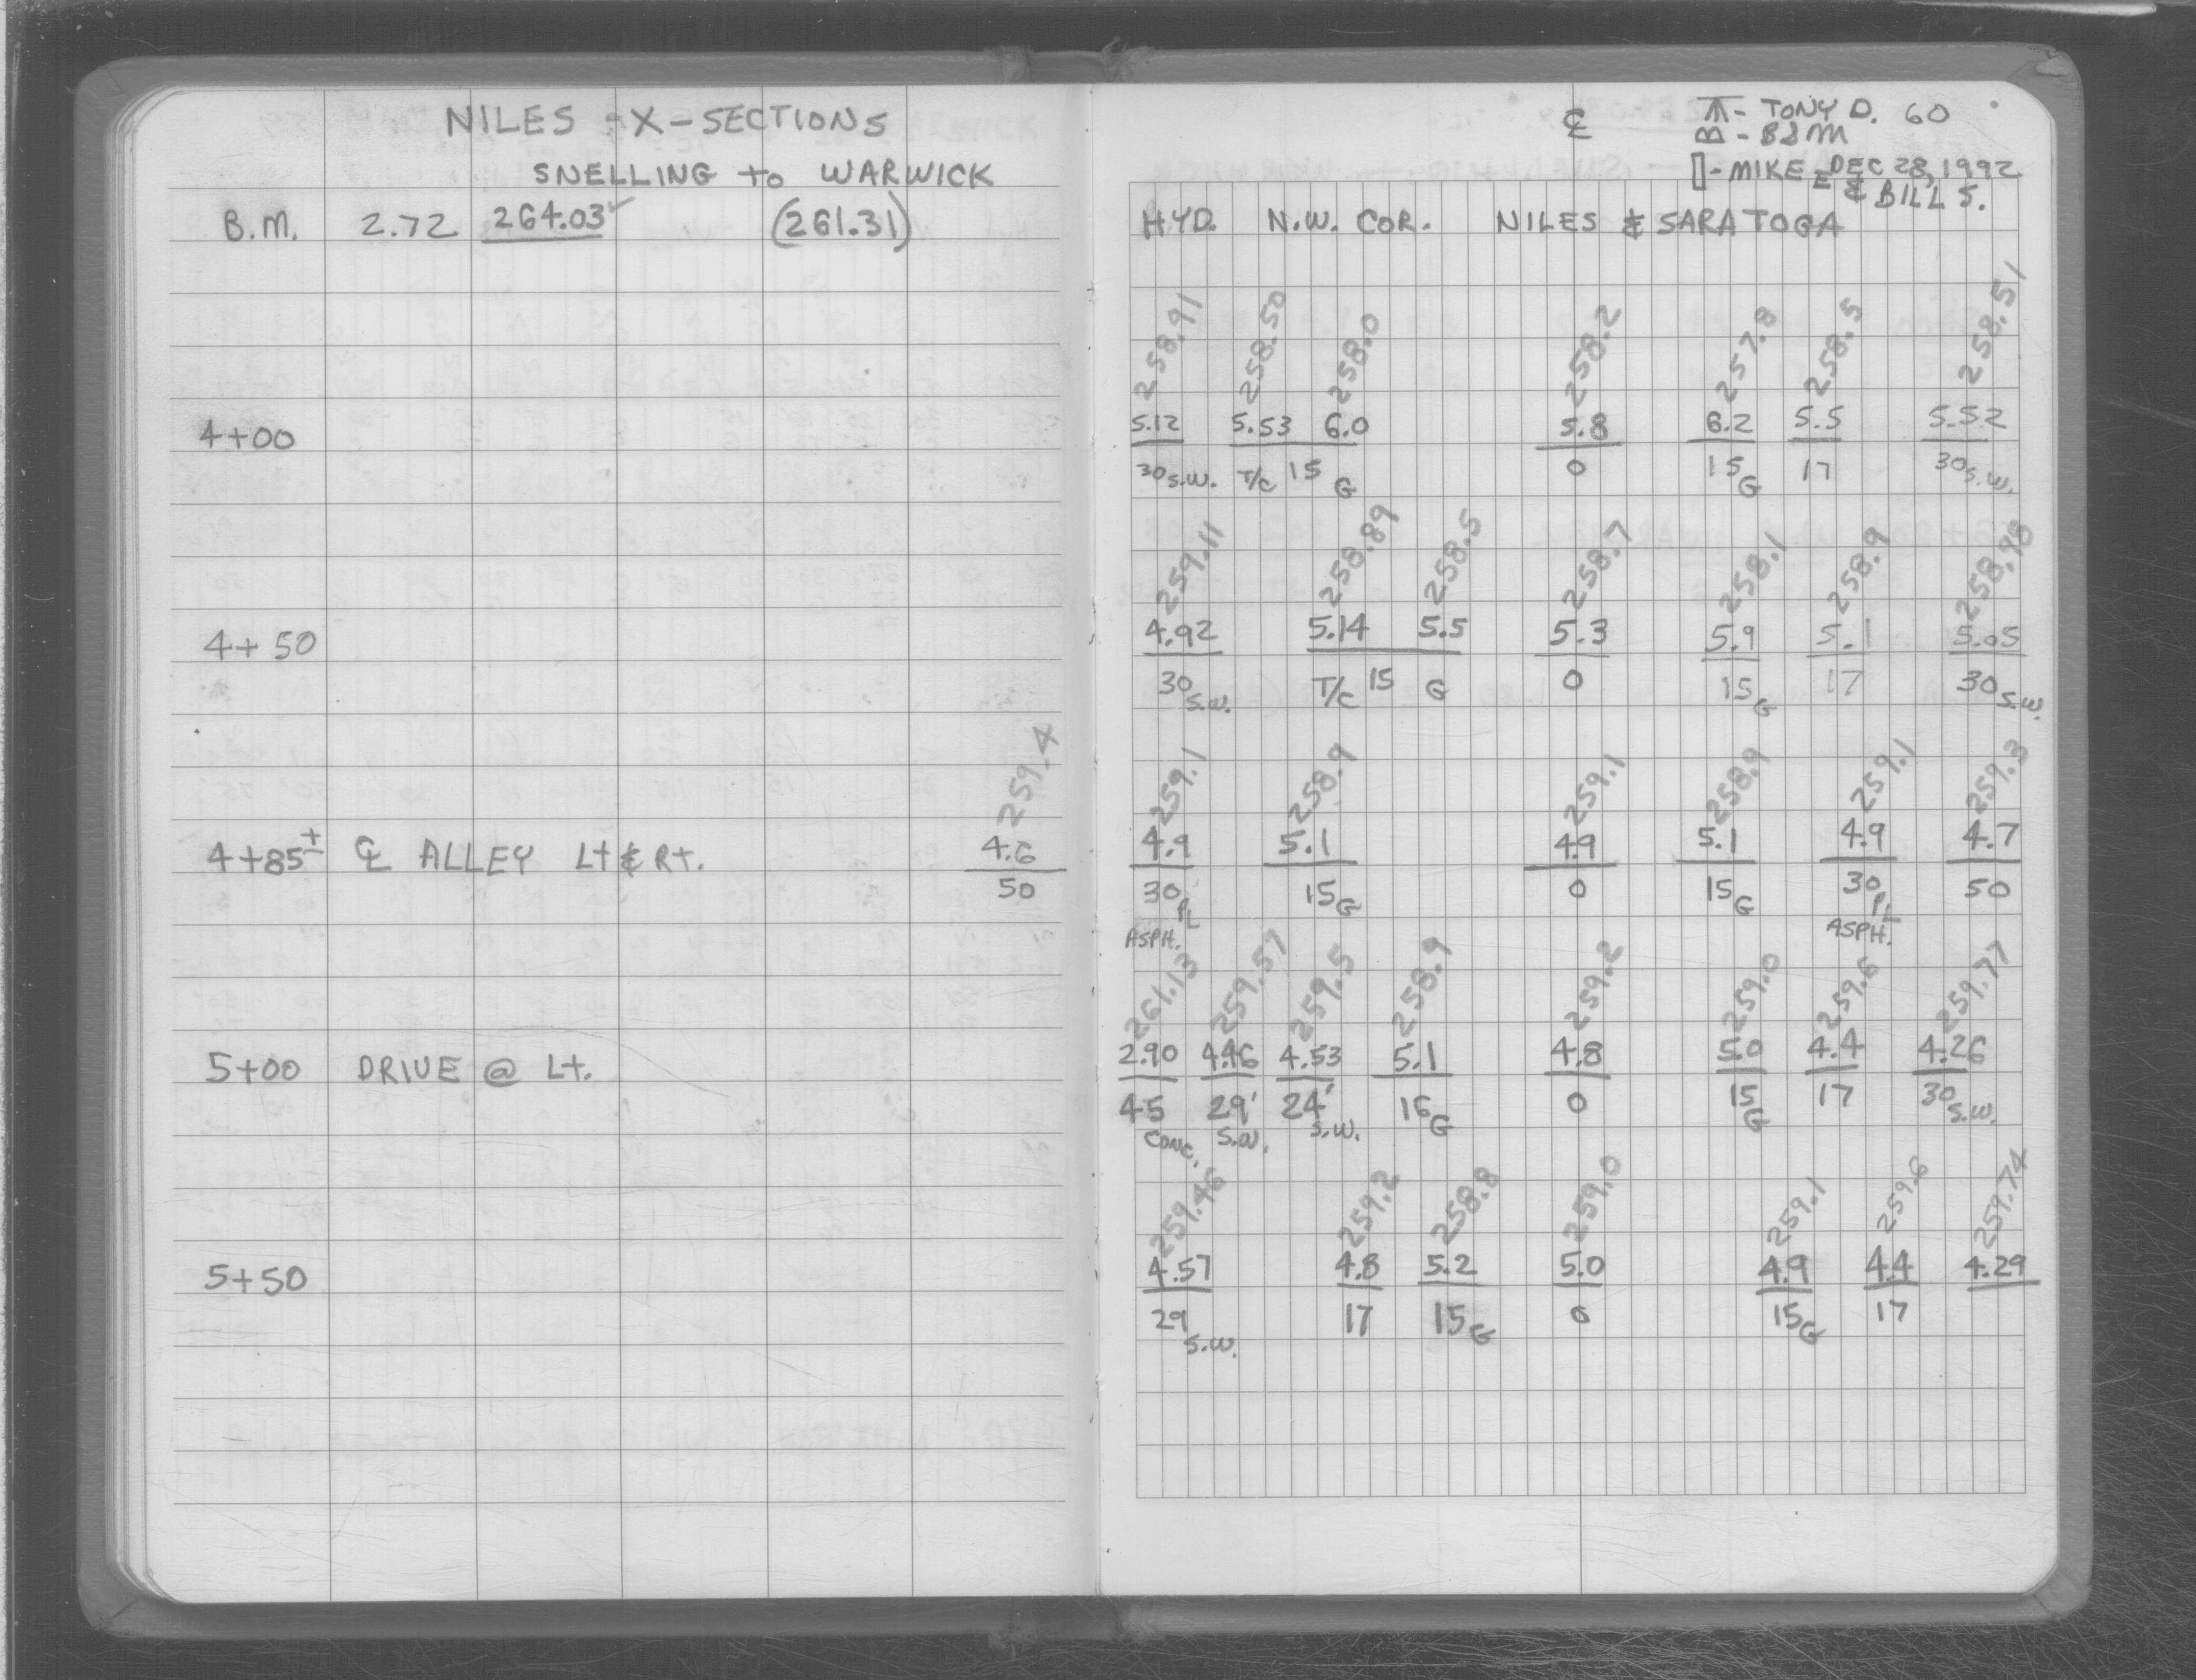 NILES - X-SECTIONS
SNELLING to WARWICK
B.M. 2.72 264.03✓ (261.31)
4+00
4+50
259.4
4+85± ℄ ALLEY Lt & Rt. 4.6
50
5+00 DRIVE @ Lt.
5+50
℄ - TONY D. 60
- B&M
- MIKE E DEC 28, 1992
& BILL S.
HYD. N.W. COR. NILES & SARATOGA
258.91 258.50 258.0 258.2 257.8 258.5 258.51
5.12 5.53 6.0 5.8 6.2 5.5 5.52
30 S.W. T/C 15 G 0 15 G 17 30 S.W.
259.11 258.89 258.5 258.7 258.1 258.9 258.98
4.92 5.14 5.5 5.3 5.9 5.1 5.05
30 S.W. T/C 15 G 0 15 G 17 30 S.W.
259.1 258.9 259.1 258.9 259.1 259.3
4.9 5.1 4.9 5.1 4.9 4.7
30 PL 15 G 0 15 G 30 PL 50
ASPH. ASPH.
261.13 259.57 259.5 258.9 259.2 259.0 259.6 259.77
2.90 4.46 4.53 5.1 4.8 5.0 4.4 4.26
45 29' 24' 16 G 0 15 G 17 30 S.W.
CONC. S.W. S.W.
259.46 259.2 258.8 259.0 259.1 259.6 259.74
4.57 4.8 5.2 5.0 4.9 4.4 4.29
29 S.W. 17 15 G 0 15 G 17